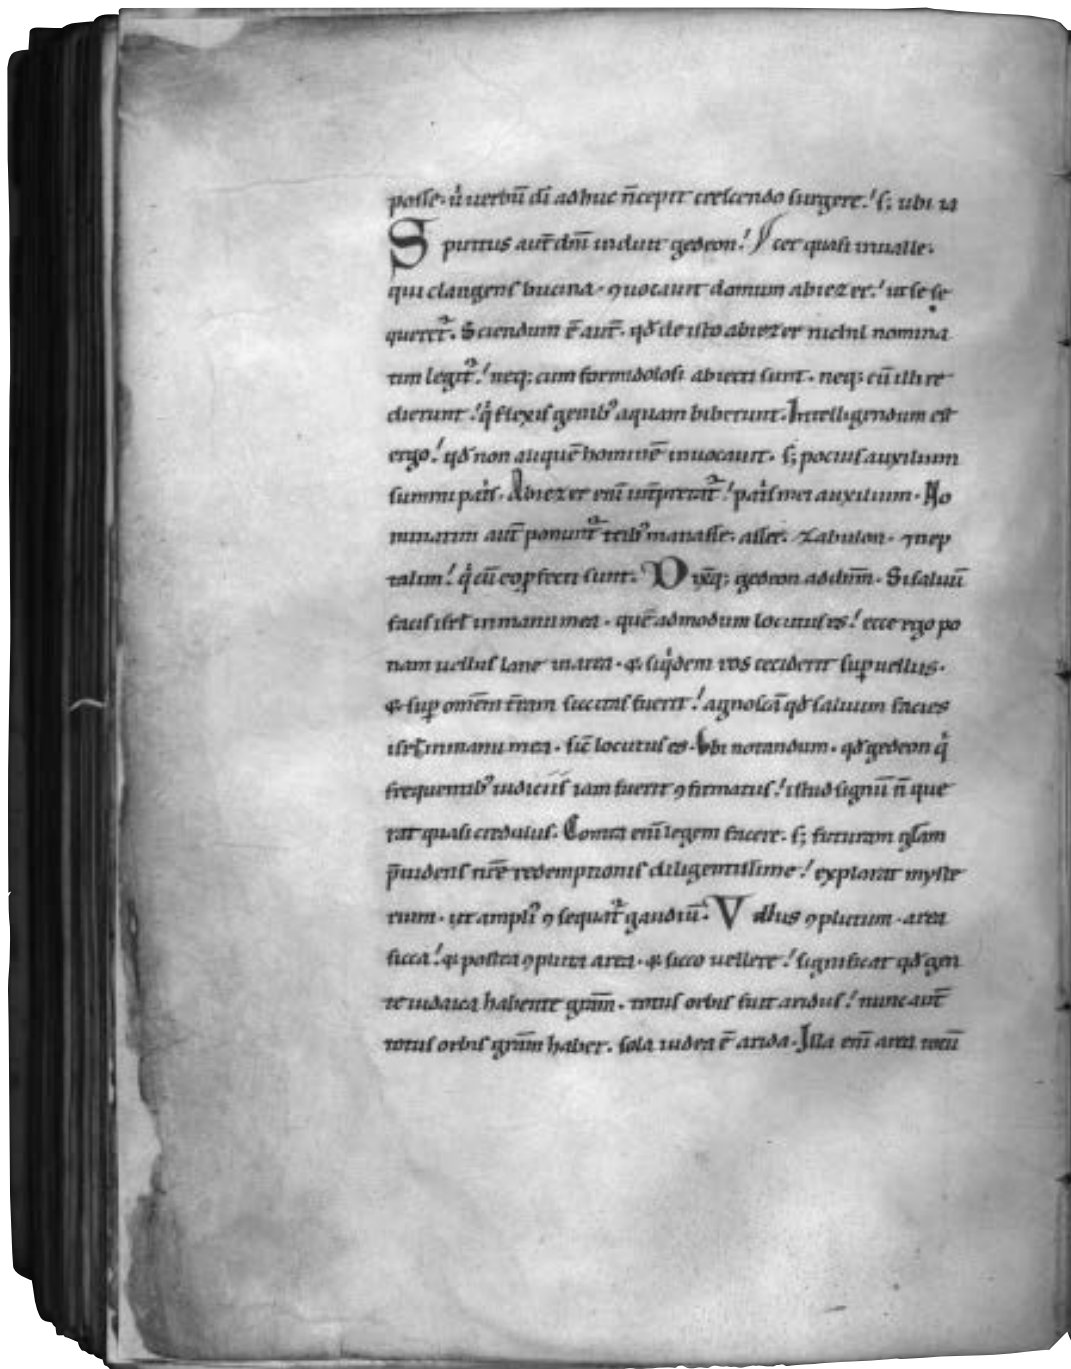 posse. ů uerbū di adhuc n̄ cepit crescendo surgere. s; ubi ia
Spiritus aut̄ dn̄i induit gedeon. iacer quasi in ualle.
qui clangens bucina. ꝯuocauit domum abiezer. ut se se
queret᷑. Sciendum ē aut̄. qđ de isto abiezer nichil nomina
tim legit᷑. neq; cum formidolosi abiecti sunt. neq; cū illi re
dierunt. qͥ flexis genibꝰ aquam biberunt. Intelligendum est
ergo. qđ non aliquē hominē inuocauit. s; pocius auxilium
summi pat̾s. Abiezer eni int̄pretat᷑. pat̾s mei auxilium. No
minatim aut̄ ponunt᷑ tribꝰ manasse. asser. zabulon. ⁊ nep
talim. qͥ cū eo ꝓfecti sunt. Dixitq; gedeon ad dn̄m. Si saluū
facis isrł in manu mea. quē admodum locutus es. ecce ego po
nam uellus lane in area. & si qͥdem ros ceciderit suꝑ uellus.
& suꝑ omēm t̄ram siccitas fuerit. agnoscā qđ saluum facies
isrł in manu mea. sic̄ locutus es. Ubi notandum. qđ gedeon qͥ
frequentibꝰ indiciis iam fuerit ꝯfirmatus. istud signū n̄ que
rat quasi credulus. Contra eni legem facere. s; futuram głam
p̄uidens nr̄e redemptionis diligentissime. explorat myste
rium. ut ampliꝰ ꝯsequat᷑ gaudiū. Vellus ꝯplutum. area
sicca. & postea ꝯpluta area. & sicco uellere. significat qđ gen
te iudaica habente gr̄am. totus orbis fuit aridus. nunc aut̄
totus orbis gr̄am habet. sola iudea ē arida. Illa eni area totū